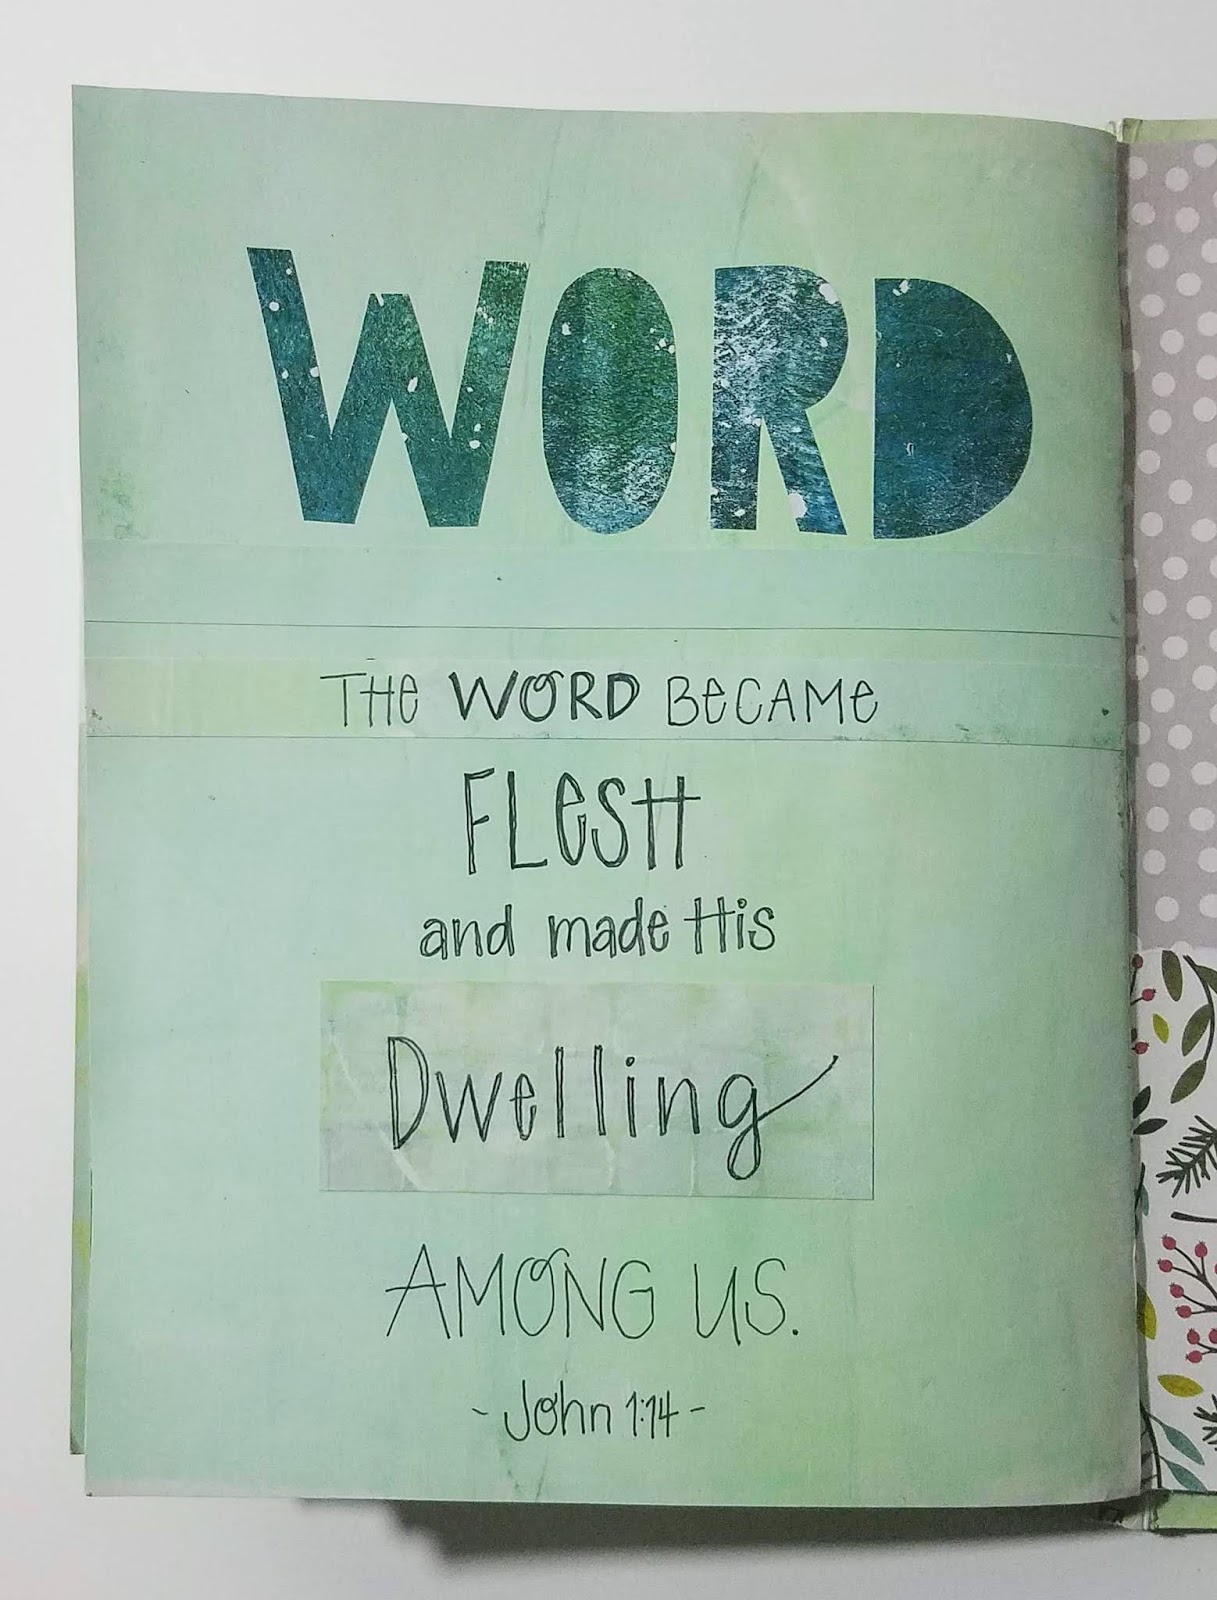 WORD
THE WORD BeCAME
FLeSH
and made His
Dwelling
AMONG US.
- John 1:14 -